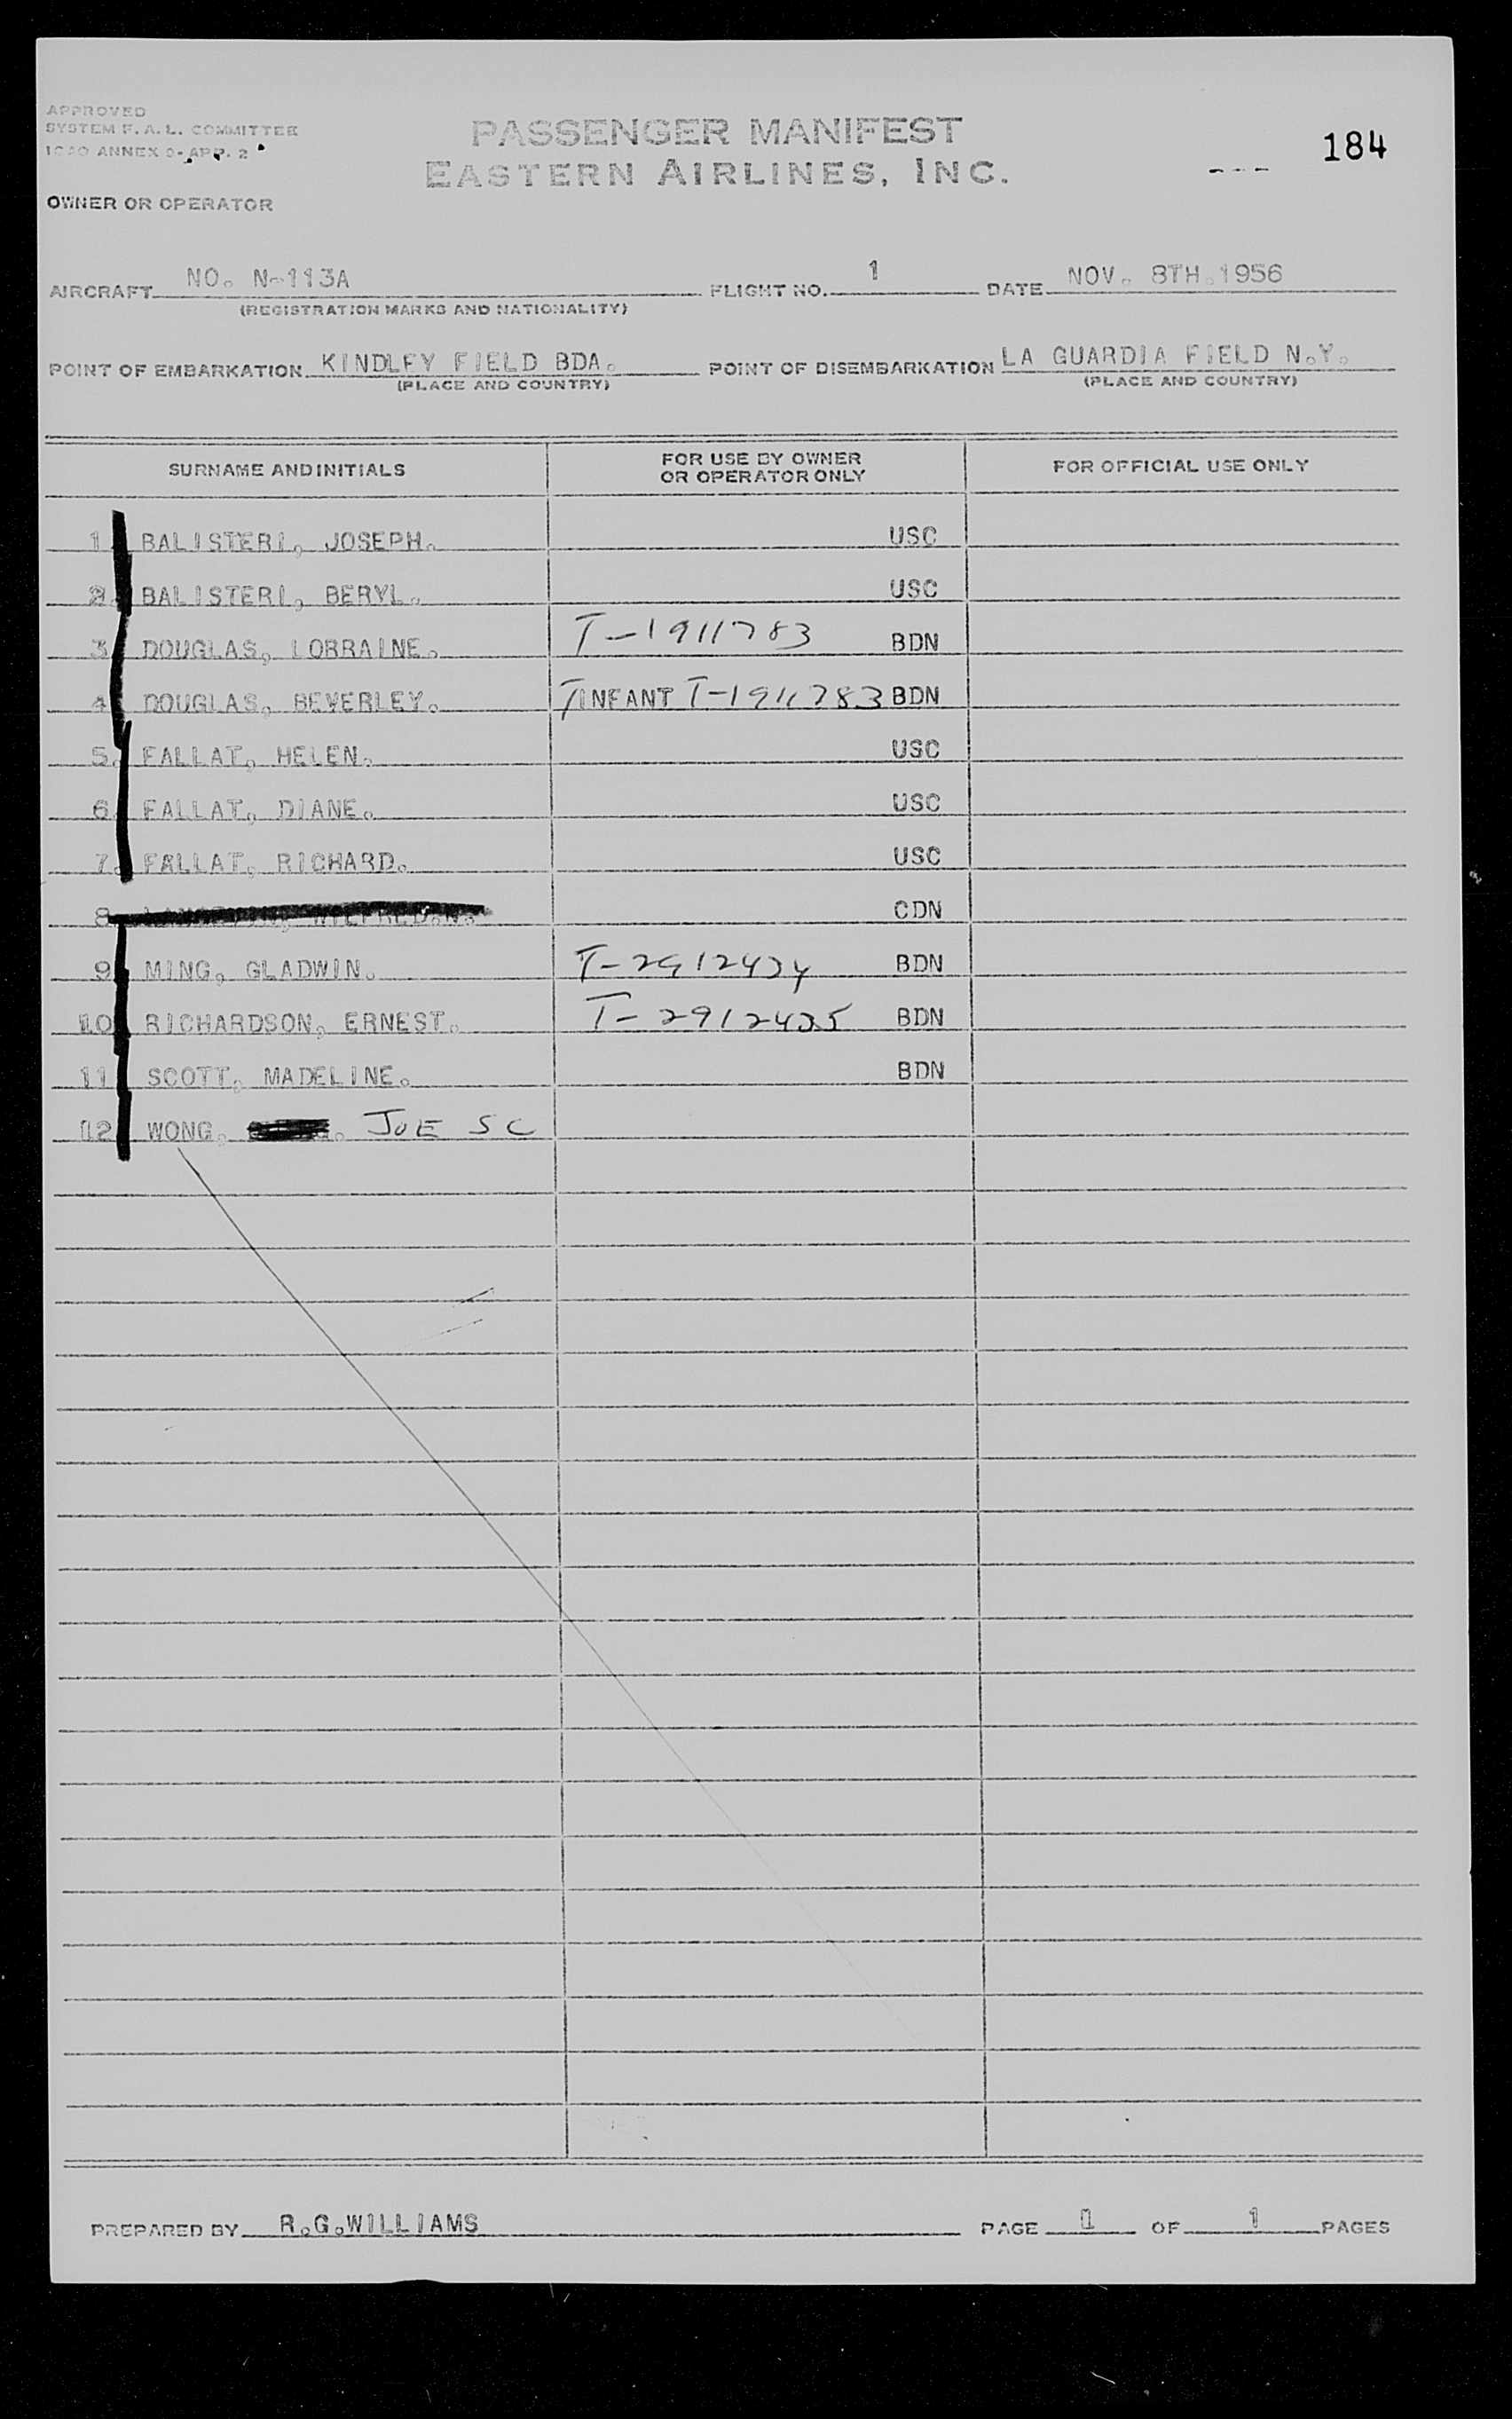 APPROVED
SYSTEM F.A.L. COMMITTEE
ICAO ANNEX 9-APP. 2
PASSENGER MANIFEST
EASTERN AIRLINES, INC.
184
OWNER OR OPERATOR
AIRCRAFT NO. N-113A FLIGHT NO. 1 DATE NOV. 8TH.1956
(REGISTRATION MARKS AND NATIONALITY)
POINT OF EMBARKATION KINDLEY FIELD BDA. POINT OF DISEMBARKATION LA GUARDIA FIELD N.Y.
(PLACE AND COUNTRY) (PLACE AND COUNTRY)
SURNAME AND INITIALS FOR USE BY OWNER OR OPERATOR ONLY FOR OFFICIAL USE ONLY
1. BALISTERI, JOSEPH. USC
2. BALISTERI, BERYL. USC
3. DOUGLAS, LORRAINE. T-1911783 BDN
4. DOUGLAS, BEVERLEY. INFANT T-1911783 BDN
5. FALLAT, HELEN. USC
6. FALLAT, DIANE. USC
7. FALLAT, RICHARD. USC
8. CDN
9. MING, GLADWIN. BDN
10. RICHARDSON, ERNEST. BDN
11. SCOTT, MADELINE. BDN
12. WONG, JOE SC
PREPARED BY R.G.WILLIAMS PAGE 1 OF 1 PAGES